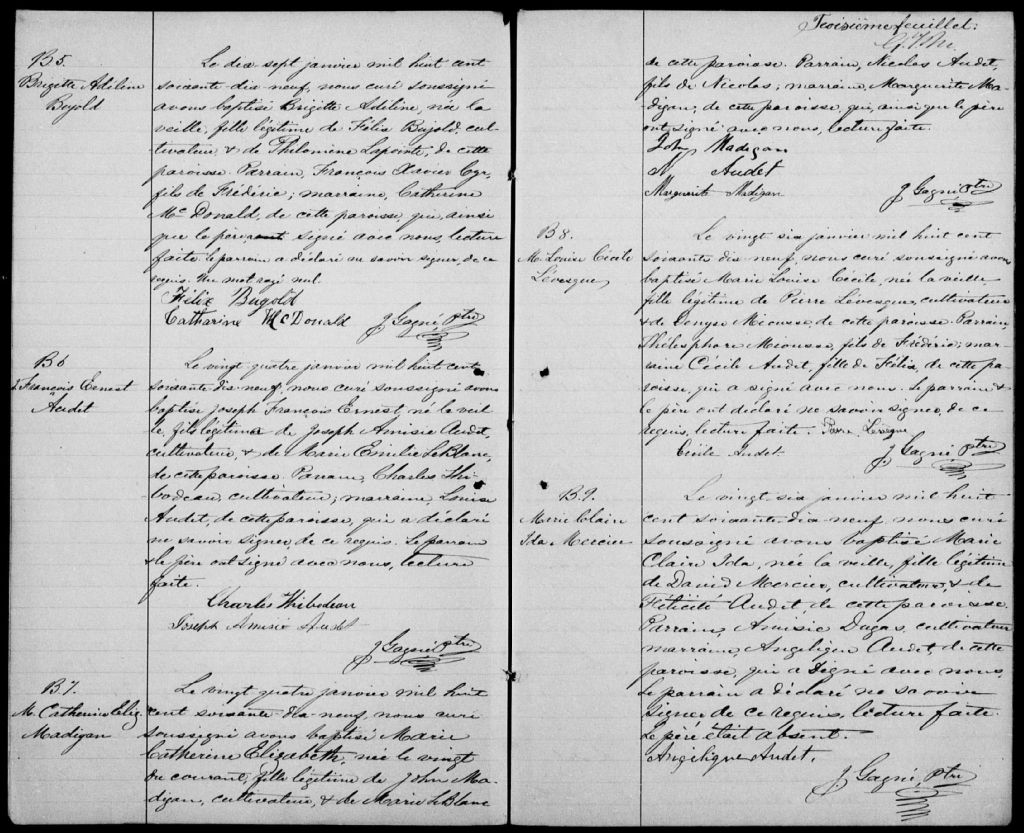 B5.
Brigitte Adéline
Bujold
Le dix sept janvier mil huit cent
soixante dix neuf, nous curé soussigné
avons baptisé Brigitte Adéline, née la
veille, fille légitime de Félix Bujold, cul-
tivateur, & de Philomène Lapointe, de cette
paroisse. Parrain, François Xavier Cyr,
fils de Frédéric; marraine, Catherine
Mc Donald, de cette paroisse, qui, ainsi
que le père, ont signé avec nous, lecture
faite. le parrain a déclaré ne savoir signer, de ce
requis. Un mot rayé nul.
Félix Bugold
Catharine McDonald
J Gagné, Ptre
B6
J. François Ernest
Audet
Le vingt quatre janvier mil huit cent
soixante dix neuf, nous curé soussigné avons
baptisé Joseph François Ernest, né le veil
le, fils légitime de Joseph Amisie Audet,
cultivateur, & de Marie Emilie LeBlanc,
de cette paroisse. Parrain, Charles Thi-
bodeau, cultivateur; marraine, Louise
Audet, de cette paroisse, qui a déclaré
ne savoir signer, de ce requis. Le parrain
& le père ont signé avec nous, lecture
faite.
Charles Thibodeau
Joseph Amisie Audet
J Gagné Ptre
B7.
M. Catherine Elig.
Madigan
Le vingt quatre janvier mil huit
cent soixante-dix-neuf, nous curé
soussigné avons baptisé Marie
Catherine Elizabeth, née le vingt
du courant, fille légitime de John Ma-
digan, cultivateur, & de Marie LeBlanc
Troisième feuillet:
de cette paroisse. Parrain, Nicolas Audet,
fils de Nicolas; marraine, Marguerite Ma-
digan, de cette paroisse, qui, ainsi que le père
ont signé avec nous, lecture faite.
John Madigan
N Audet
Marguerite Madigan
J Gagné Ptre
B8.
M. Louise Cécile
Lévesque
Le vingt six janvier mil huit cent
soixante dix neuf, nous curé soussigné avons
baptisé Marie Louise Cécile, née la veille,
fille légitime de Pierre Levesque, cultivateur
& de Denyse Miousse, de cette paroisse. Parrain
Thélesphore Miousse, fils de Frédéric; mar-
raine Cécile Audet, fille de Félix, de cette pa-
roisse, qui a signé avec nous. Le parrain &
le père ont déclaré ne savoir signer, de ce
requis, lecture faite. Levesque
Cécile Audet
J Gagné Ptre
B9.
Marie Claire
Ida Mercier
Le vingt six janvier mil huit
cent soixante-dix neuf, nous curé
soussigné avons baptisé Marie
Claire Ida, née la veille, fille légitime
de David Mercier, cultivateur, & de
Félicité Audet, de cette paroisse.
Parrain, Amisie Dugas, cultivateur
marraine, Angelique Audet, de cette
paroisse, qui a signé avec nous.
Le parrain a déclaré ne savoir
signer de ce requis, lecture faite.
Le père était absent.
Angélique Audet.
J Gagné, Ptre